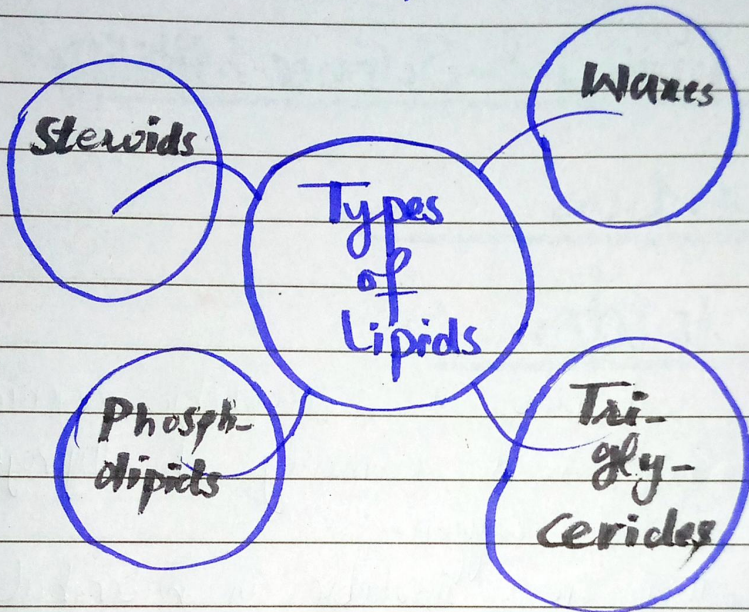 Steroids
Waxes
Types
of
Lipids
Phosph-
olipids
Tri-
gly-
cerides